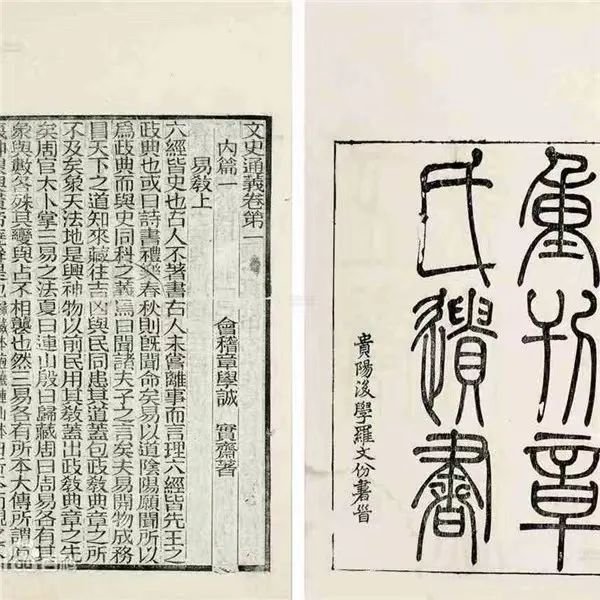 重刊章
氏遺書
貴陽後學羅文份書
文史通義卷第一
內篇一　會稽章學誠　實齋著
易教上
六經皆史也古人不著書古人未嘗離事而言理六經皆先王之
政典也或曰詩書禮樂春秋則既聞命矣易以道陰陽願聞所以
為政典而與史同科之義焉曰聞諸夫子之言矣夫易開物成務
冒天下之道知來藏往吉凶與民同患其道蓋包政教典章之所
不及矣象天法地是興神物以前民用其教蓋出政教典章之先
矣周官太卜掌三易之法夏曰連山殷曰歸藏周曰周易各有其
象與數各殊其變與占不相襲也然三易各有所本大傳所謂庖